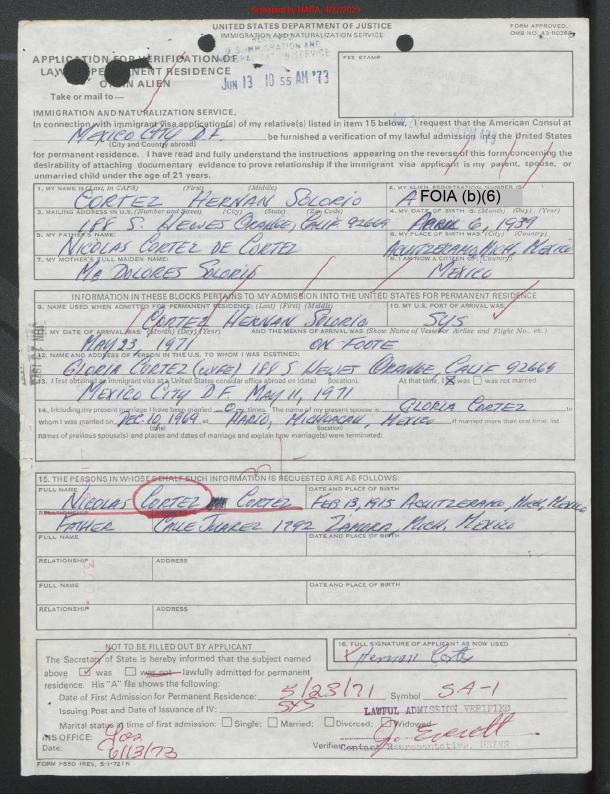 Screened by NARA, 4/27/2023
UNITED STATES DEPARTMENT OF JUSTICE
IMMIGRATION AND NATURALIZATION SERVICE
FORM APPROVED.
OMB NO.
APPLICATION FOR VERIFICATION OF
LAWFUL PERMANENT RESIDENCE
OF AN ALIEN
Take or mail to—
JUN 13 10 55 AM '73
FEE STAMP
IMMIGRATION AND NATURALIZATION SERVICE,
In connection with immigrant visa application(s) of my relative(s) listed in item 15 below, I request that the American Consul at
MEXICO CITY D.F. be furnished a verification of my lawful admission into the United States
(City and Country abroad)
for permanent residence. I have read and fully understand the instructions appearing on the reverse of this form concerning the
desirability of attaching documentary evidence to prove relationship if the immigrant visa applicant is my parent, spouse, or
unmarried child under the age of 21 years.
1. MY NAME IS (Last, in CAPS) (First) (Middle)
CORTEZ HERNAN SOLORIO
2. MY ALIEN REGISTRATION NUMBER IS
A FOIA (b)(6)
3. MAILING ADDRESS IN U.S. (Number and Street) (City) (State) (Zip Code)
188 S. HEWES ORANGE, CALIF 92669
4. MY DATE OF BIRTH IS (Month) (Day) (Year)
APRIL 6, 1939
5. MY FATHER'S NAME:
NICOLAS CORTEZ DE CORTEZ
6. MY PLACE OF BIRTH WAS: (City) (Country)
AGUITZERAMO, MICH, MEXICO
7. MY MOTHER'S FULL MAIDEN NAME:
MA DOLORES SOLORIO
8. I AM NOW A CITIZEN OF: (Country)
MEXICO
INFORMATION IN THESE BLOCKS PERTAINS TO MY ADMISSION INTO THE UNITED STATES FOR PERMANENT RESIDENCE
9. NAME USED WHEN ADMITTED FOR PERMANENT RESIDENCE: (Last) (First) (Middle)
CORTEZ HERNAN SOLORIO
10. MY U.S. PORT OF ARRIVAL WAS:
SYS
11. MY DATE OF ARRIVAL WAS: (Month) (Day) (Year) AND THE MEANS OF ARRIVAL WAS: (Show Name of Vessel or Airline and Flight No., etc.)
MAY 23, 1971 ON FOOTE
12. NAME AND ADDRESS OF PERSON IN THE U.S. TO WHOM I WAS DESTINED:
GLORIA CORTEZ (WIFE) 188 S HEWES ORANGE, CALIF 92669
13. I first obtained an immigrant visa at a United States consular office abroad on (date) (location). At that time, I X was was not married
MEXICO CITY D.F. MAY 11, 1971
14. Including my present marriage I have been married 0 times. The name of my present spouse is: GLORIA CORTEZ to
whom I was married on DEC 10, 1969 at HARIO, MICHOACAN, MEXICO If married more than once, list
(date) (location)
names of previous spouse(s) and places and dates of marriage and explain how marriage(s) were terminated:
15. THE PERSONS IN WHOSE BEHALF SUCH INFORMATION IS REQUESTED ARE AS FOLLOWS:
FULL NAME DATE AND PLACE OF BIRTH
NICOLAS CORTEZ CORTEZ FEB 13, 1915 AGUITZERAMO, MICH, MEXICO
RELATIONSHIP
FATHER CALLE JUAREZ 1792 ZAMORA, MICH, MEXICO
FULL NAME DATE AND PLACE OF BIRTH
RELATIONSHIP ADDRESS
FULL NAME DATE AND PLACE OF BIRTH
RELATIONSHIP ADDRESS
NOT TO BE FILLED OUT BY APPLICANT
16. FULL SIGNATURE OF APPLICANT AS NOW USED
Hernan Cortez
The Secretary of State is hereby informed that the subject named
above was was not lawfully admitted for permanent
residence. His "A" file shows the following:
Date of First Admission for Permanent Residence: 5/23/71 Symbol SA-1
Issuing Post and Date of Issuance of IV: SYS
LAWFUL ADMISSION VERIFIED
Marital status at time of first admission: Single; Married; Divorced; Widowed
INS OFFICE: Los
Date: 6/13/73
Verifier
Contact Representative, USINS
FORM I-550 (REV. 5-1-72)N